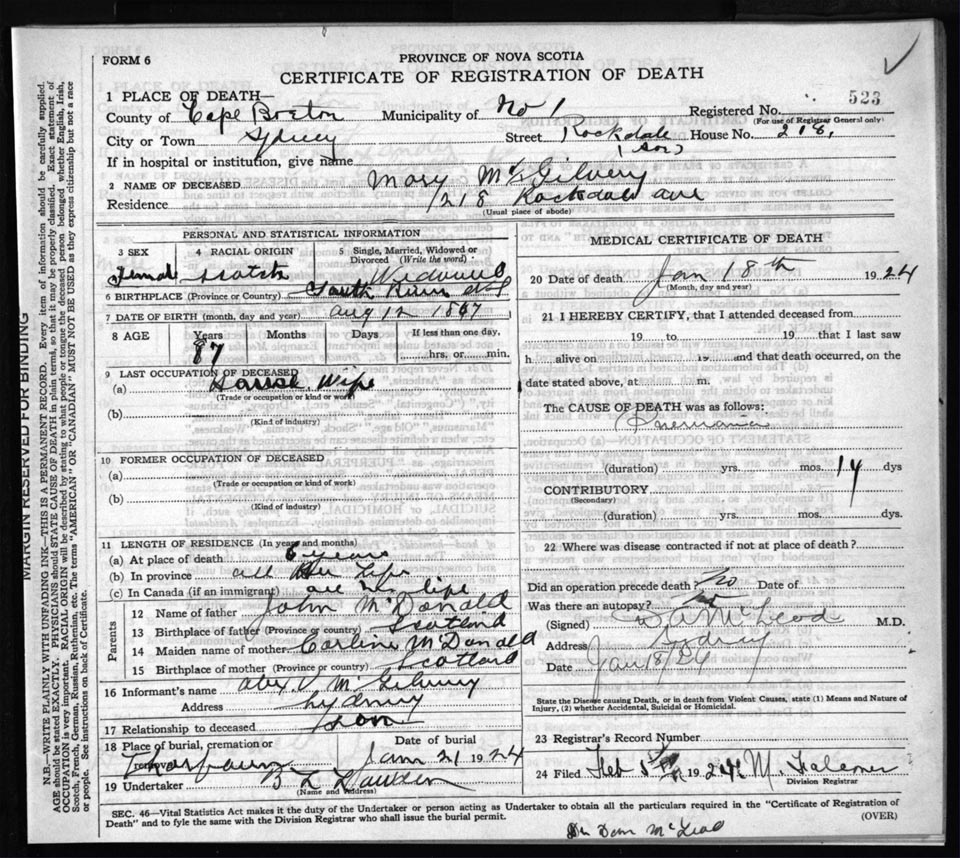 FORM 6
PROVINCE OF NOVA SCOTIA
CERTIFICATE OF REGISTRATION OF DEATH
1 PLACE OF DEATH—
County of Cape Breton Municipality of No 1 Registered No. 523
(For use of Registrar General only)
City or Town Sydney Street Rockdale House No. 218,
If in hospital or institution, give name
2 NAME OF DECEASED Mary McGilvery
Residence 218 Rockdale ave
(Usual place of abode)
PERSONAL AND STATISTICAL INFORMATION
3 SEX 4 RACIAL ORIGIN 5 Single, Married, Widowed or Divorced (Write the word)
Female Scotch Widowed
6 BIRTHPLACE (Province or Country) South River NS
7 DATE OF BIRTH (month, day and year) Aug 12
8 AGE Years Months Days If less than one day,
87 hrs. or min.
9 LAST OCCUPATION OF DECEASED
(a) House Wife
(Trade or occupation or kind of work)
(b)
(Kind of industry)
10 FORMER OCCUPATION OF DECEASED
(a)
(Trade or occupation or kind of work)
(b)
(Kind of industry)
11 LENGTH OF RESIDENCE (In years and months)
(a) At place of death 6 years
(b) In province all Her Life
(c) In Canada (if an immigrant) all Her life
Parents
12 Name of father John McDonald
13 Birthplace of father (Province or country) Scotland
14 Maiden name of mother McDonald
15 Birthplace of mother (Province or country) Scotland
16 Informant's name Alex McGilvery
Address Sydney
17 Relationship to deceased Son
18 Place of burial, cremation or removal Date of burial
Jan 21 1924
19 Undertaker
(Name and address)
MEDICAL CERTIFICATE OF DEATH
20 Date of death Jan 18th 1924
(Month, day and year)
21 I HEREBY CERTIFY, that I attended deceased from
19 to 19 that I last saw
h alive on 19 and that death occurred, on the
date stated above, at m.
The CAUSE OF DEATH was as follows:
Pneumonia
(duration) yrs. mos. 14 dys
CONTRIBUTORY
(Secondary)
(duration) yrs. mos. dys.
22 Where was disease contracted if not at place of death?
Did an operation precede death? no Date of
Was there an autopsy? no
(Signed) McLeod M.D.
Address Sydney
Date Jan 18/24
State the Disease causing Death, or in death from Violent Causes, state (1) Means and Nature of
Injury, (2) whether Accidental, Suicidal or Homicidal.
23 Registrar's Record Number
24 Filed Feb 1924 M. Falconer
Division Registrar
SEC. 46—Vital Statistics Act makes it the duty of the Undertaker or person acting as Undertaker to obtain all the particulars required in the "Certificate of Registration of
Death" and to fyle the same with the Division Registrar who shall issue the burial permit.
(OVER)
Dr Dan McLeod
MARGIN RESERVED FOR BINDING
N.B.—WRITE PLAINLY WITH UNFADING INK—THIS IS A PERMANENT RECORD. Every item of information should be carefully supplied.
AGE should be stated EXACTLY. PHYSICIANS should STATE CAUSE OF DEATH in plain terms, so that it may be properly classified. Exact statement of
OCCUPATION is very important. RACIAL ORIGIN will be described by stating to what people or tongue the deceased person belonged whether English, Irish,
Scotch, French, German, Russian, Ruthenian, etc. The terms "AMERICAN" OR "CANADIAN" MUST NOT BE USED as they express citizenship but not a race
or people. See instructions on back of Certificate.